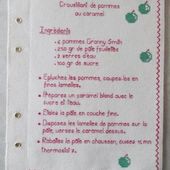 Croustillant de pommes
au caramel
Ingrédients
. 4 pommes Granny Smith
. 250 gr de pâte feuilletée
. 2 verres d'eau
. 100 gr de sucre
• Epluchez les pommes, coupez-les en
fines lamelles.
• Préparez un caramel blond avec le
sucre et l'eau.
• Etalez la pâte en couche fine.
• Disposez les lamelles de pommes sur la
pâte, versez le caramel dessus.
• Rabattez la pâte en chausson, cuisez 15 mn
thermostat 7.